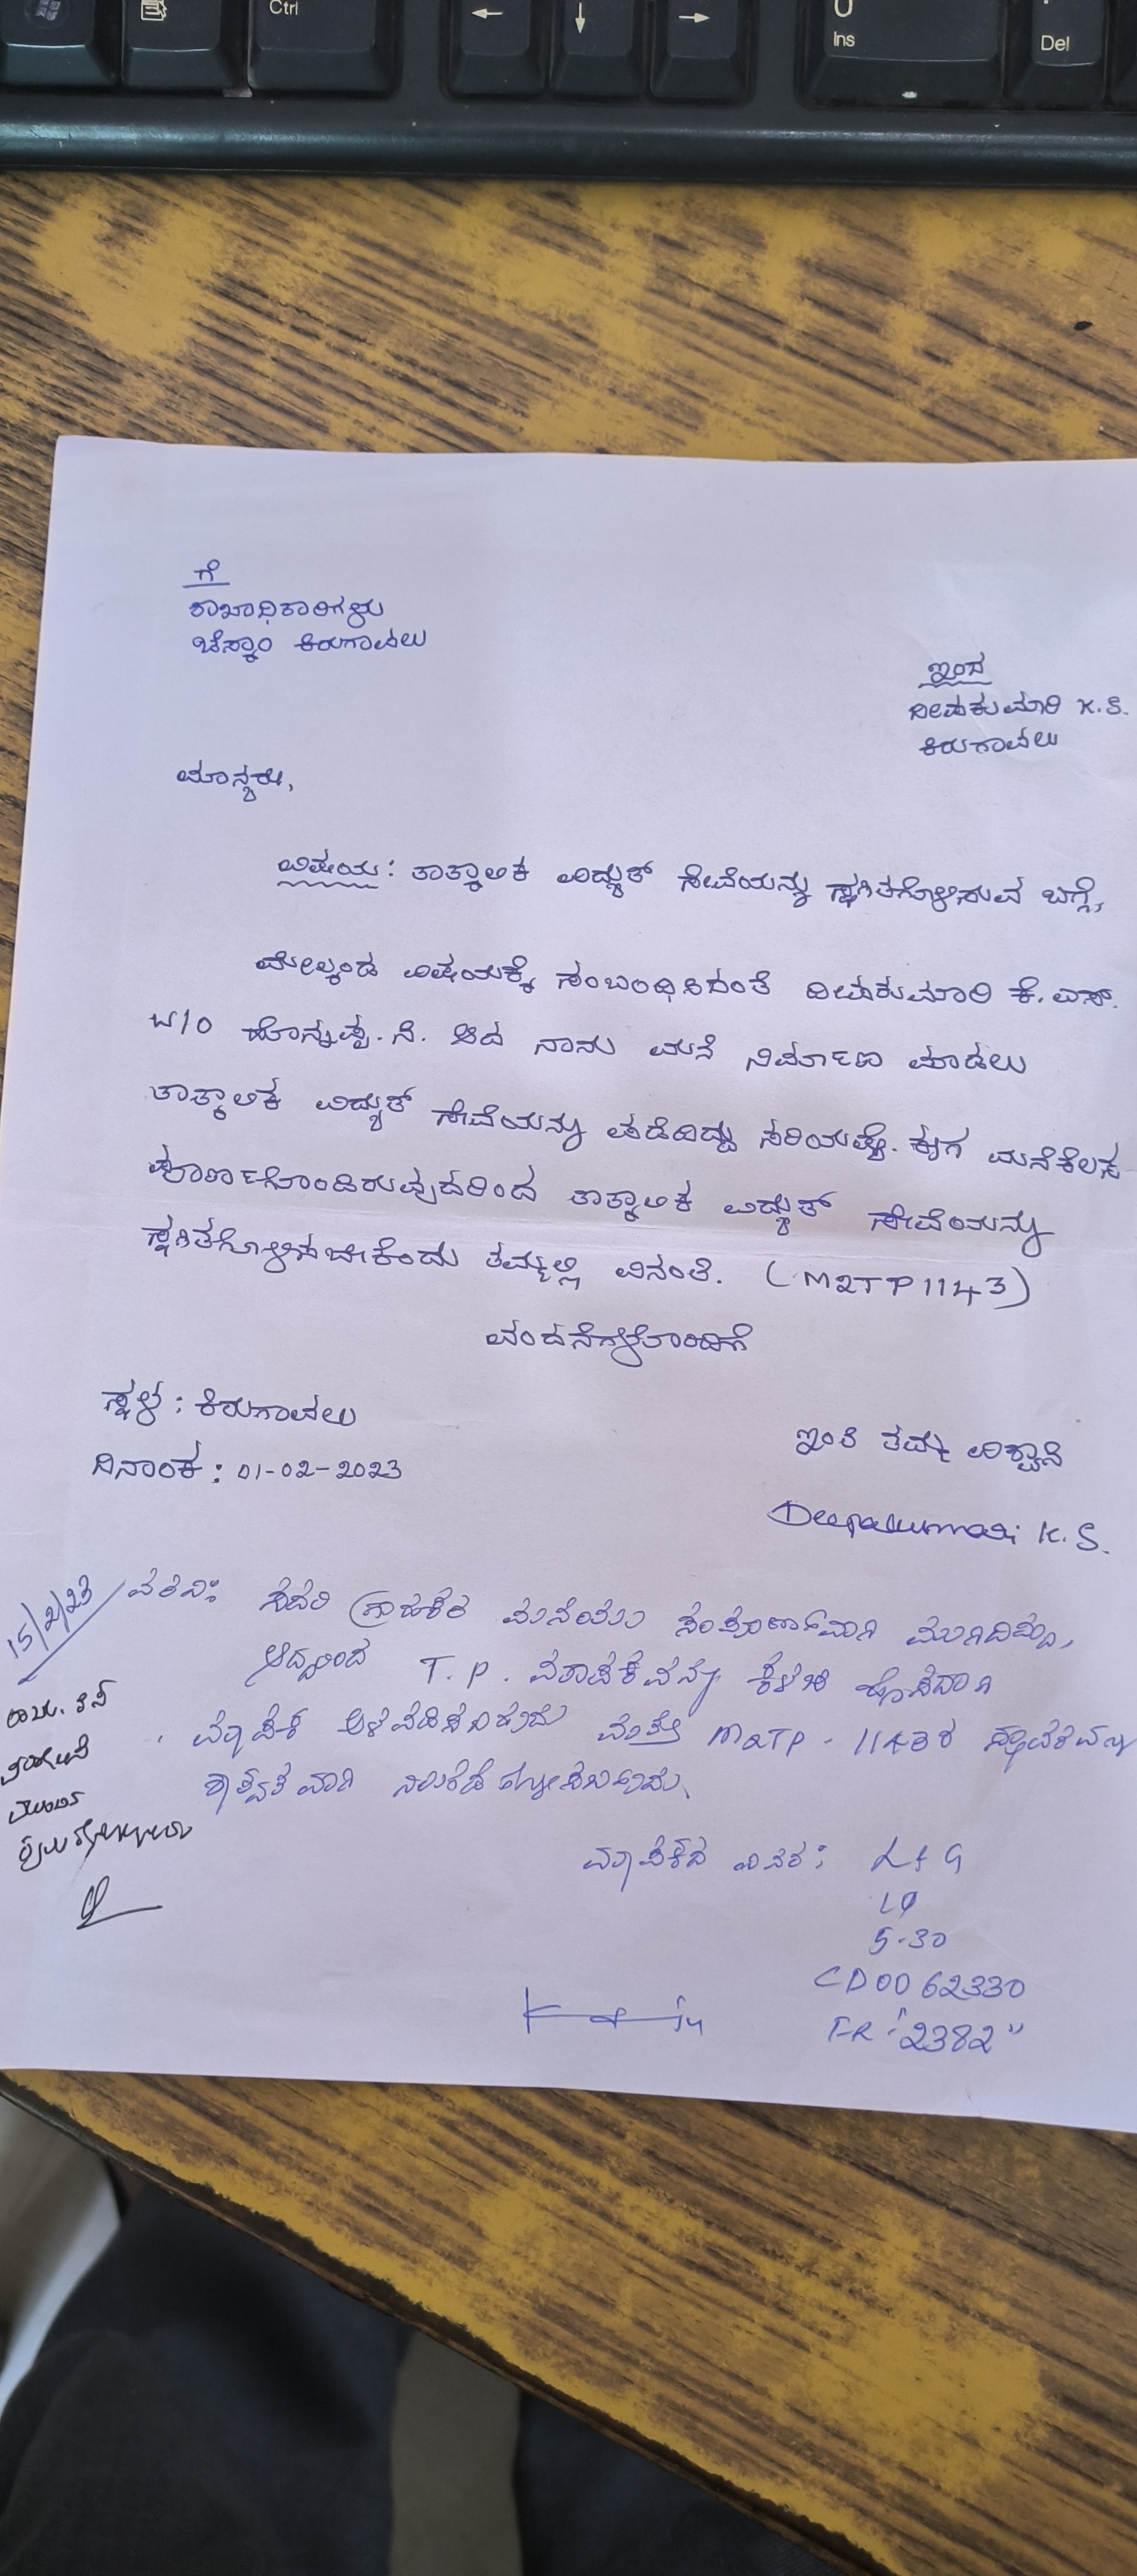 Ctrl
Ins
Del
ಗೆ
ಶಾಖಾಧಿಕಾರಿಗಳು
ಚೆಸ್ಕಾಂ ಕಿರುಗಾವಲು
ಇಂದ
ದೀಪಕುಮಾರಿ K.S.
ಕಿರುಗಾವಲು
ಮಾನ್ಯರೇ,
ವಿಷಯ: ತಾತ್ಕಾಲಿಕ ವಿದ್ಯುತ್ ಸೇವೆಯನ್ನು ಸ್ಥಗಿತಗೊಳಿಸುವ ಬಗ್ಗೆ,
ಮೇಲ್ಕಂಡ ವಿಷಯಕ್ಕೆ ಸಂಬಂಧಿಸಿದಂತೆ ದೀಪಕುಮಾರಿ ಕೆ.ಎಸ್.
W/O ಹೊನ್ನಪ್ಪ.ಸಿ. ಆದ ನಾನು ಮನೆ ನಿರ್ಮಾಣ ಮಾಡಲು
ತಾತ್ಕಾಲಿಕ ವಿದ್ಯುತ್ ಸೇವೆಯನ್ನು ಪಡೆದಿದ್ದು ಸರಿಯಷ್ಟೆ. ಈಗ ಮನೆಕೆಲಸ
ಪೂರ್ಣಗೊಂಡಿರುವುದರಿಂದ ತಾತ್ಕಾಲಿಕ ವಿದ್ಯುತ್ ಸೇವೆಯನ್ನು
ಸ್ಥಗಿತಗೊಳಿಸಬೇಕೆಂದು ತಮ್ಮಲ್ಲಿ ವಿನಂತಿ. (M2TP1143)
ವಂದನೆಗಳೊಂದಿಗೆ
ಸ್ಥಳ: ಕಿರುಗಾವಲು
ದಿನಾಂಕ: 01-02-2023
ಇಂತಿ ತಮ್ಮ ವಿಶ್ವಾಸಿ
Deepakumari K.S.
15/2/23
ವರದಿ: ಸದರಿ ಗ್ರಾಹಕರ ಮನೆಯು ಸಂಪೂರ್ಣವಾಗಿ ಮುಗಿದಿದ್ದು,
ಆದ್ದರಿಂದ T.P. ಮಾಪಕವನ್ನು ಕಳಚಿ ಹೊಸದಾಗಿ
ಮಾಪಕ ಅಳವಡಿಸಬಹುದು ಮತ್ತು M2TP-1143ರ ಸ್ಥಾವರವನ್ನು
ಶಾಶ್ವತವಾಗಿ
ಮಾಪಕದ ವಿವರ: L+G
1φ
5-30
CD0062330
FR: "2382"